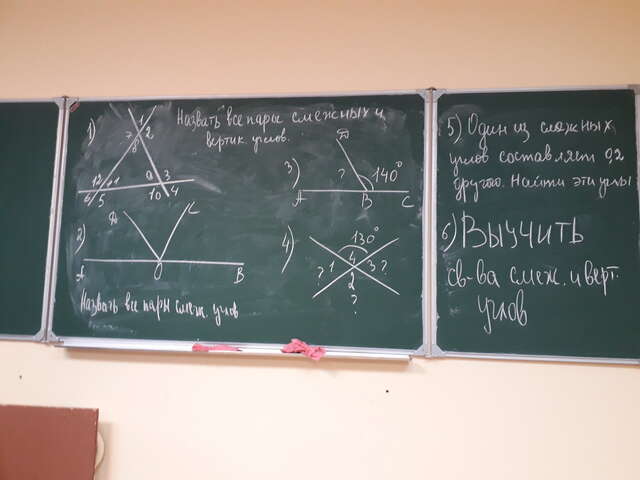 1)
Назвать все пары смежных и
вертик. углов.
1
7 2
8
12 11 9 3
6 5 10 4
2)
D C
A O B
Назвать все пары смеж. углов
3)
D
? 140°
A B C
4)
130°
? 1 4 3 ?
2
?
5) Один из смежных
углов составляет 0,2
другого. Найти эти углы
6) Выучить
св-ва смеж. и верт.
углов